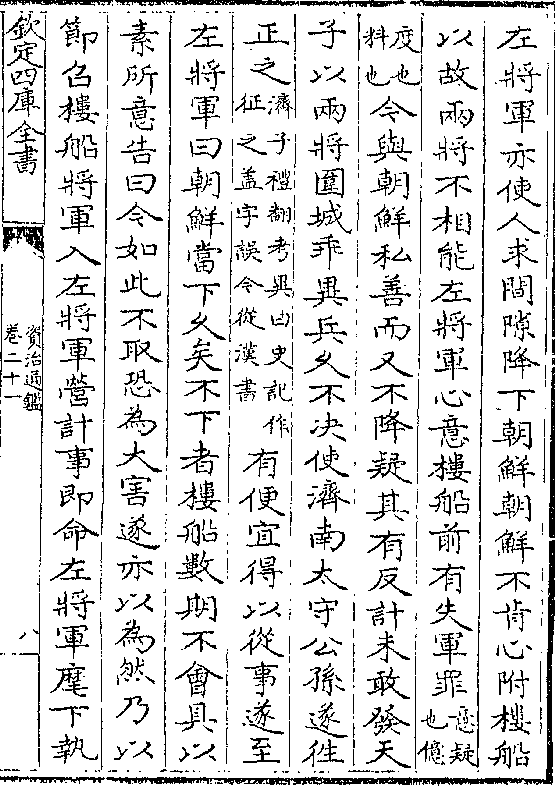 左將軍亦使人求間隙降下朝鮮朝鮮不肯心附樓船
以故兩將不相能左將軍心意樓船前有失軍罪意疑也億
度也料也今與朝鮮私善而又不降疑其有反計未敢發天
子以兩將圍城乖異兵久不决使濟南太守公孫遂徃
正之濟子禮翻考異曰史記作征之蓋字誤今從漢書有便宜得以從事遂至
左將軍曰朝鮮當下久矣不下者樓船數期不會具以
素所意告曰今如此不取恐為大害遂亦以為然乃以
節召樓船將軍入左將軍營計事即命左將軍麾下執
欽定四庫全書
資治通鑑
卷二十一
八